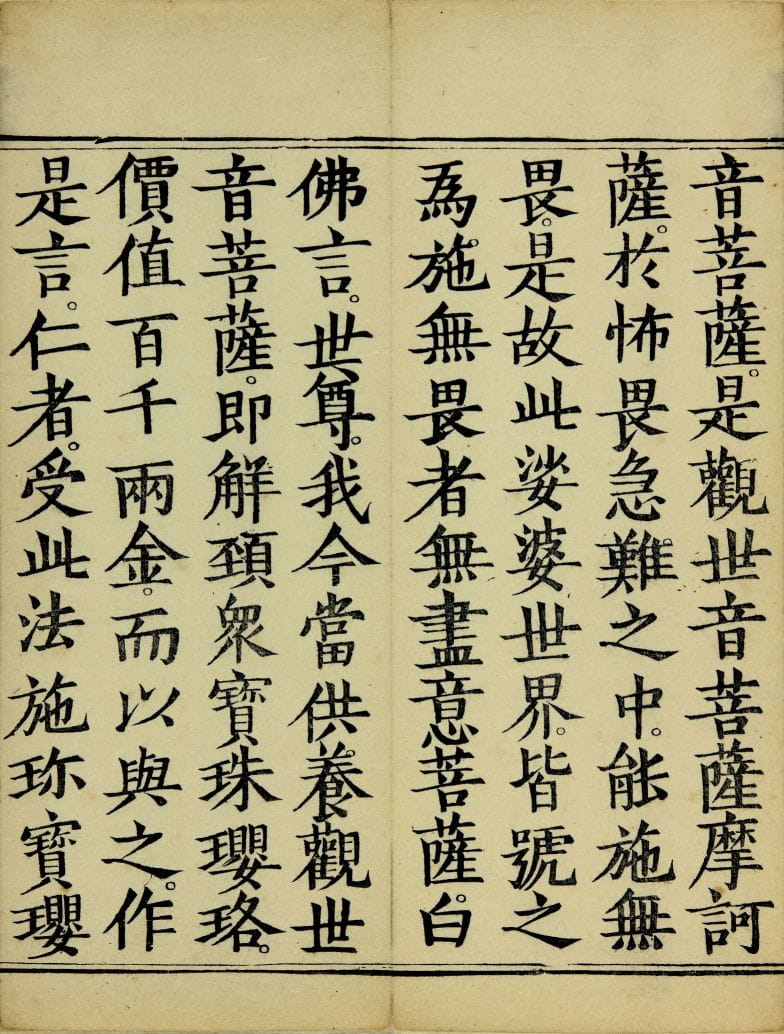 音菩薩。是觀世音菩薩摩訶
薩。於怖畏急難之中。能施無
畏。是故此娑婆世界。皆號之
為。施無畏者無盡意菩薩。白
佛言。世尊。我今當供養觀世
音菩薩。即解頸衆寶珠瓔珞。
價值百千兩金。而以與之。作
是言。仁者。受此法施珎寶瓔